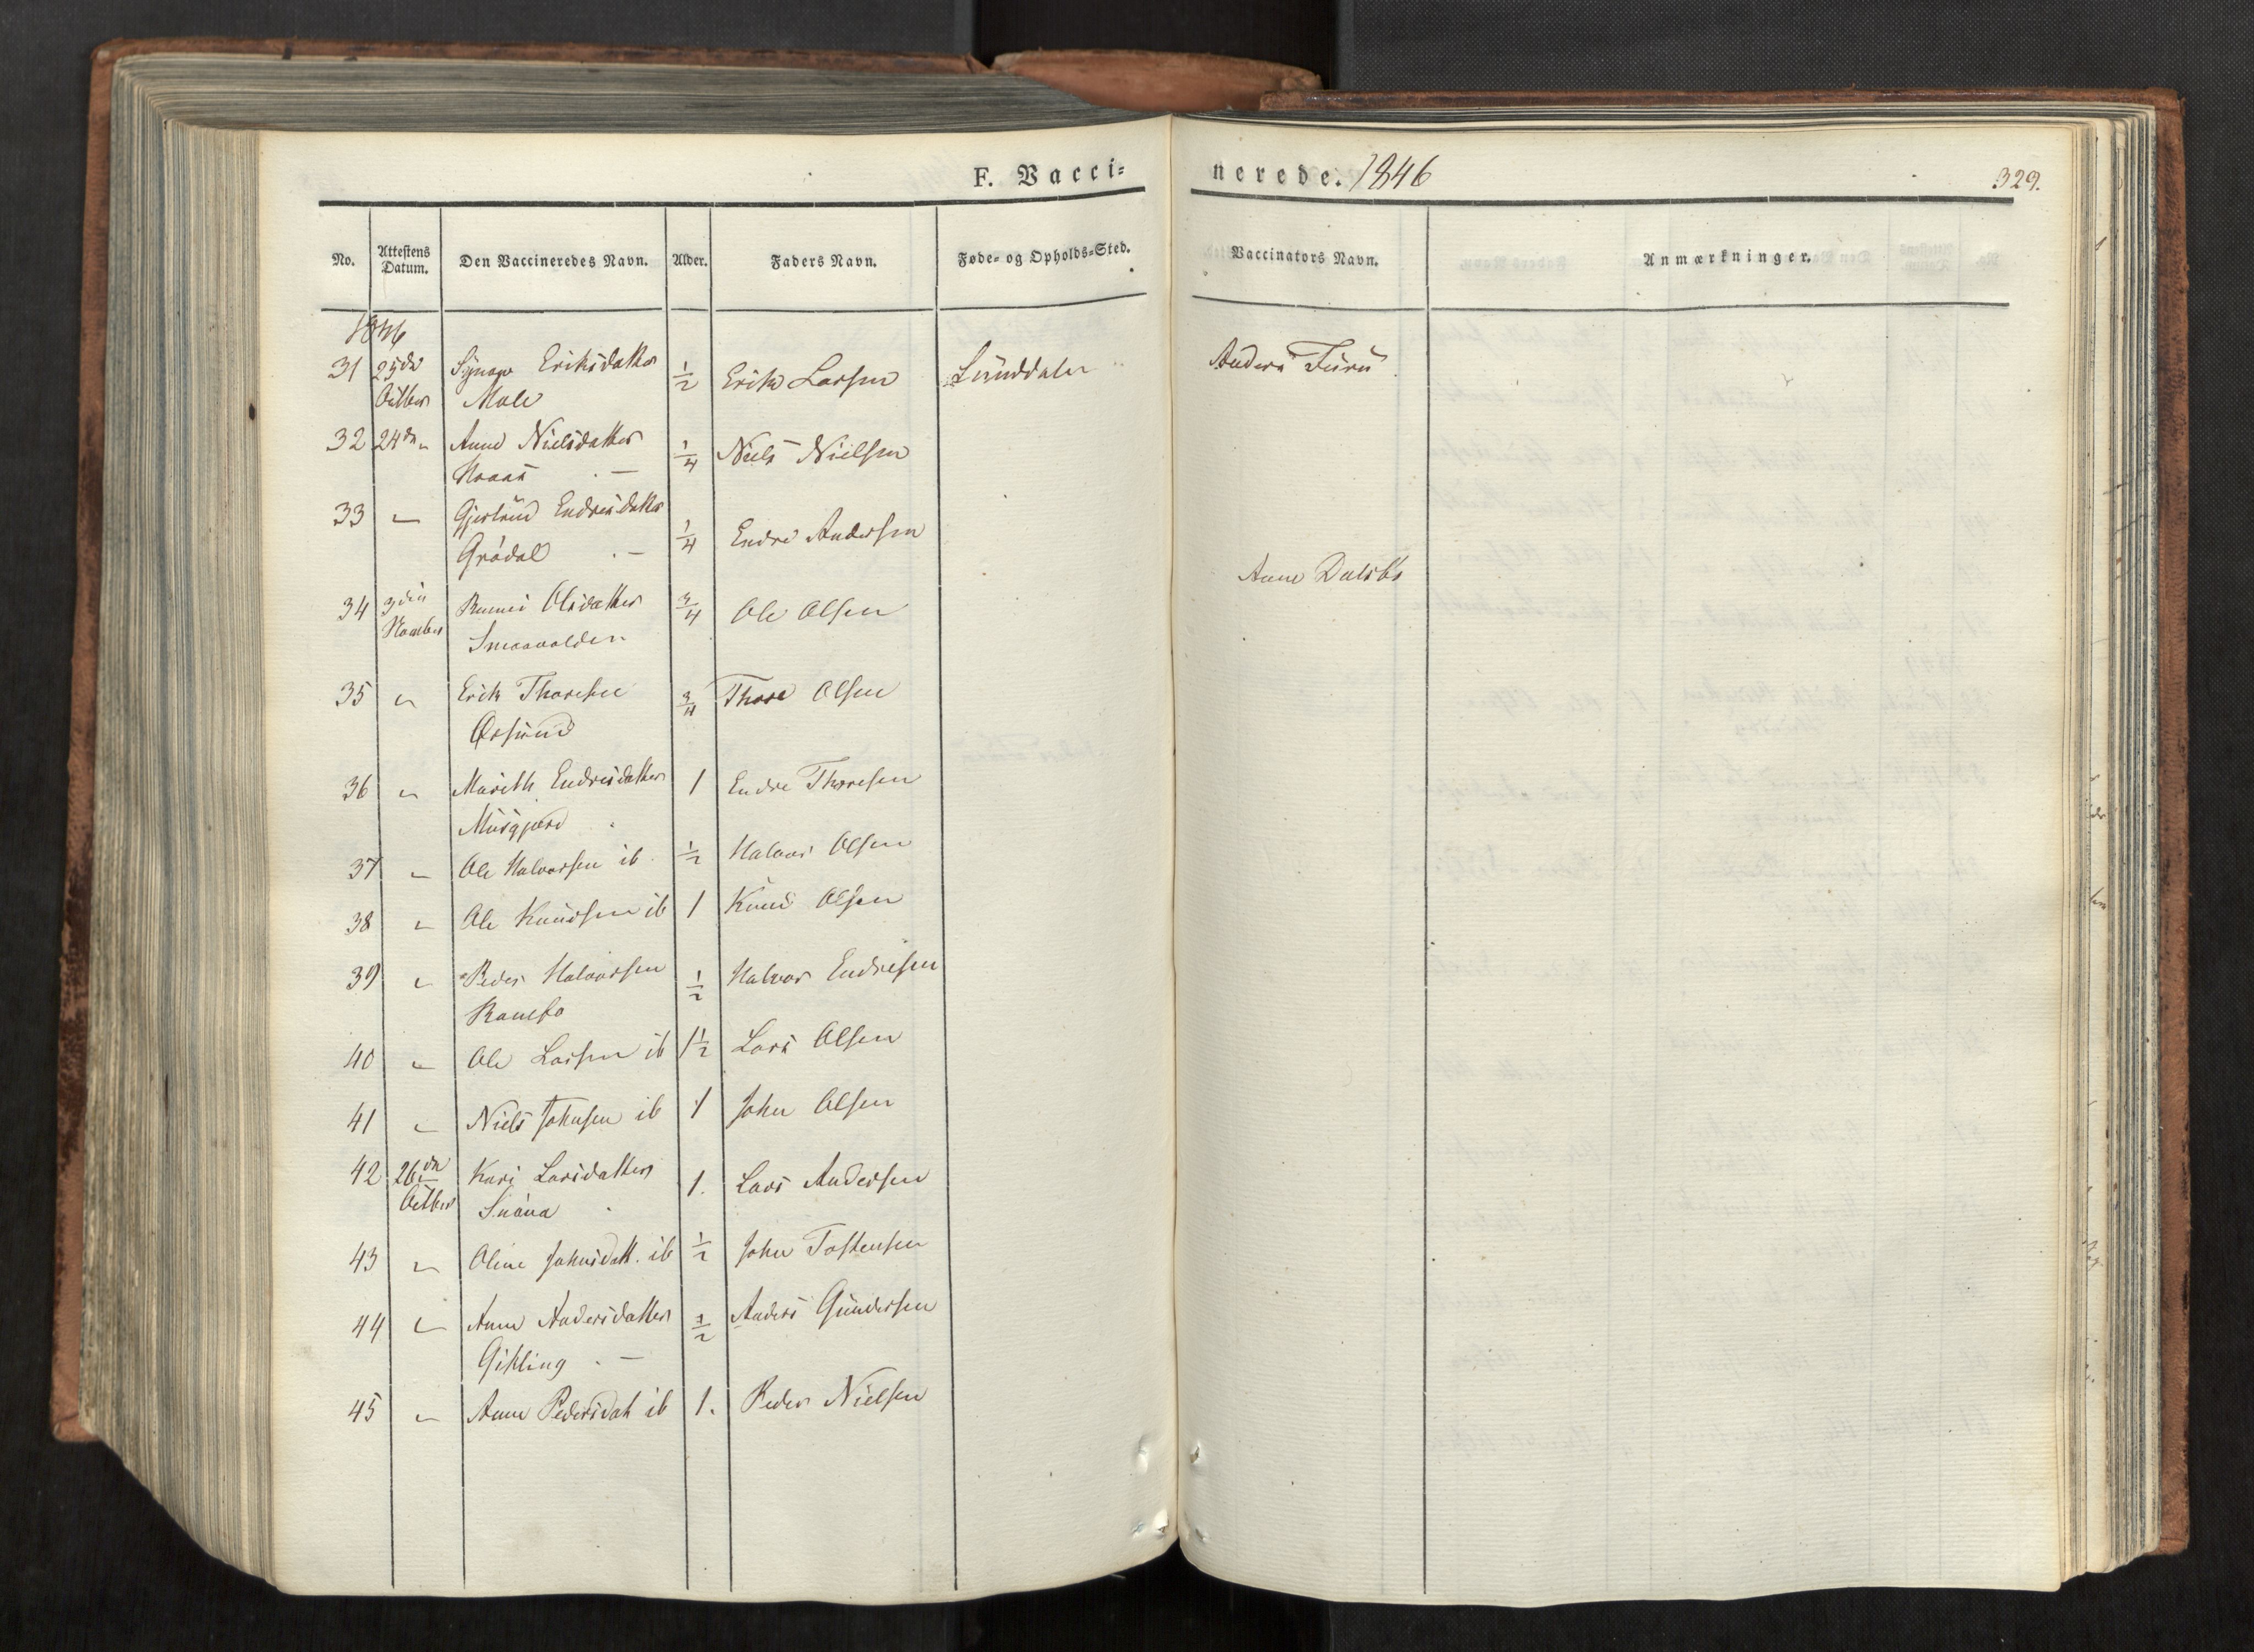 F. Vacci=
nerede. 1846
329.
No.
Attestens Datum.
Den Vaccineredes Navn.
Alder.
Faders Navn.
Føde- og Opholds-Sted.
Vaccinators Navn.
Anmærkninger.
1846
31 25de Eriksdatter 1/2 Erik Larsen Sunddalen Anders Furu
Octber Mæle
32 24de " Anne Nielsdatter 1/4 Niels Nielsen
Hoaas -
33 " Gjertrud Endresdatter 1/4 Endre Andersen
Grødal - Anne
34 3die Olsdatter 3/4 Ole Olsen
Novbr Smaavolden
35 " Erik Thoresen 3/4 Thore Olsen
36 " Marith Endresdatter 1 Endre Thoresen
Musgjerd
37 " Ole Halvorsen ib 1/2 Halvor Olsen
38 " Ole Knudsen ib 1 Knud Olsen
39 " Peder Halvorsen 1/2 Halvor Endresen
40 " Ole Larsen ib 1 1/2 Lars Olsen
41 " Niels Johnsen ib 1 John Olsen
42 26de Kari Larsdatter 1. Lars Andersen
Octber Snøva
43 " Oline Johnsdatt. ib 1/2 John Tostensen
44 " Anne Andersdatter 1/2 Anders Gundersen
Gikling -
45 " Anne Pedersdat ib 1. Peder Nielsen